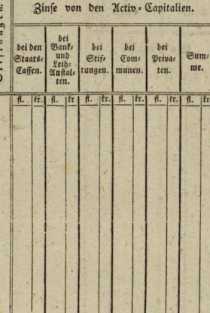 Zinse von den Activ-Capitalien.
bei den Staats-Cassen.
bei Bank- und Leih-Anstal-ten.
bei Stif-tungen.
bei Com-munen.
bei Priva-ten.
Sum-me.
fl. kr. fl. kr fl. kr. fl. kr. fl. kr. fl. kr.